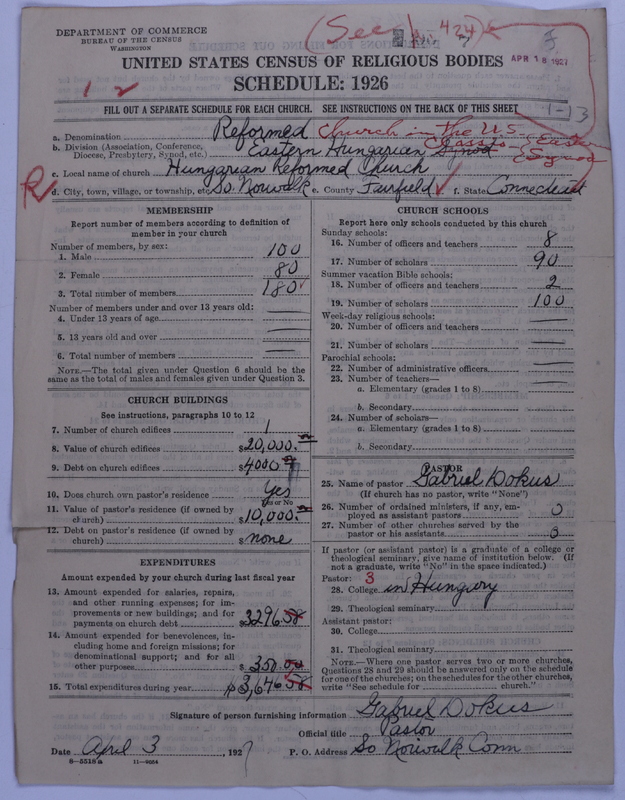 DEPARTMENT OF COMMERCE
BUREAU OF THE CENSUS
WASHINGTON
(See 424)
UNITED STATES CENSUS OF RELIGIOUS BODIES
APR 18 1927
SCHEDULE: 1926
1 2
FILL OUT A SEPARATE SCHEDULE FOR EACH CHURCH. SEE INSTRUCTIONS ON THE BACK OF THIS SHEET
1-13
a. Denomination Reformed Church in the U.S.
b. Division (Association, Conference, Diocese, Presbytery, Synod, etc.) Eastern Hungarian Synod Classis (Eastern Synod
c. Local name of church Hungarian Reformed Church
R d. City, town, village, or township, etc. So. Norwalk e. County Fairfield f. State Connecticut
MEMBERSHIP
Report number of members according to definition of
member in your church
Number of members, by sex:
1. Male 100
2. Female 80
3. Total number of members 180
Number of members under and over 13 years old:
4. Under 13 years of age
5. 13 years old and over
6. Total number of members
NOTE.—The total given under Question 6 should be
same as the total of males and females given under Question 3.
CHURCH BUILDINGS
See instructions, paragraphs 10 to 12
7. Number of church edifices 1
8. Value of church edifices $20,000.
9. Debt on church edifices $4000
10. Does church own pastor's residence Yes
Yes or No
11. Value of pastor's residence (if owned by
church) $10,000.
12. Debt on pastor's residence (if owned by
church) $ none
EXPENDITURES
Amount expended by your church during last fiscal year
13. Amount expended for salaries, repairs,
and other running expenses; for im-
provements or new buildings; and for
payments on church debt $3296.58
14. Amount expended for benevolences, in-
cluding home and foreign missions; for
denominational support; and for all
other purposes $350.00
15. Total expenditures during year $3,646.58
CHURCH SCHOOLS
Report here only schools conducted by this church
Sunday schools:
16. Number of officers and teachers 8
17. Number of scholars 90
Summer vacation Bible schools:
18. Number of officers and teachers 2
19. Number of scholars 100
Week-day religious schools:
20. Number of officers and teachers
21. Number of scholars
Parochial schools:
22. Number of administrative officers
23. Number of teachers—
a. Elementary (grades 1 to 8)
b. Secondary
24. Number of scholars—
a. Elementary (grades 1 to 8)
b. Secondary
PASTOR
25. Name of pastor Gabriel Dokus
(If church has no pastor, write "None")
26. Number of ordained ministers, if any, em-
ployed as assistant pastors 0
27. Number of other churches served by the
pastor or his assistants 0
If pastor (or assistant pastor) is a graduate of a college or
theological seminary, give name of institution below. (If
not a graduate, write "No" in the space indicated.)
Pastor: 3
28. College in Hungary
29. Theological seminary
Assistant pastor:
30. College
31. Theological seminary
NOTE.—Where one pastor serves two or more churches,
Questions 28 and 29 should be answered only on the schedule
for one of the churches; on the schedules for the other churches,
write "See schedule for church."
Signature of person furnishing information Gabriel Dokus
Official title Pastor
Date April 3, 1927
P. O. Address So Norwalk Conn
8-5518a 11-9054